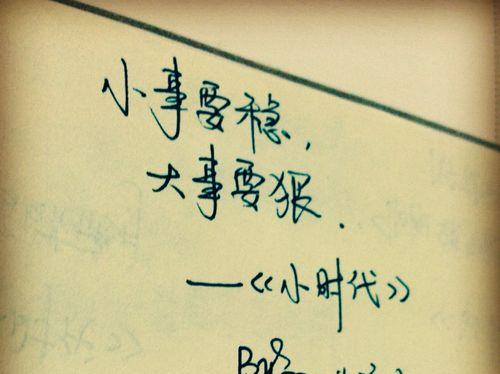 小事要稳,
大事要狠.
——《小时代》